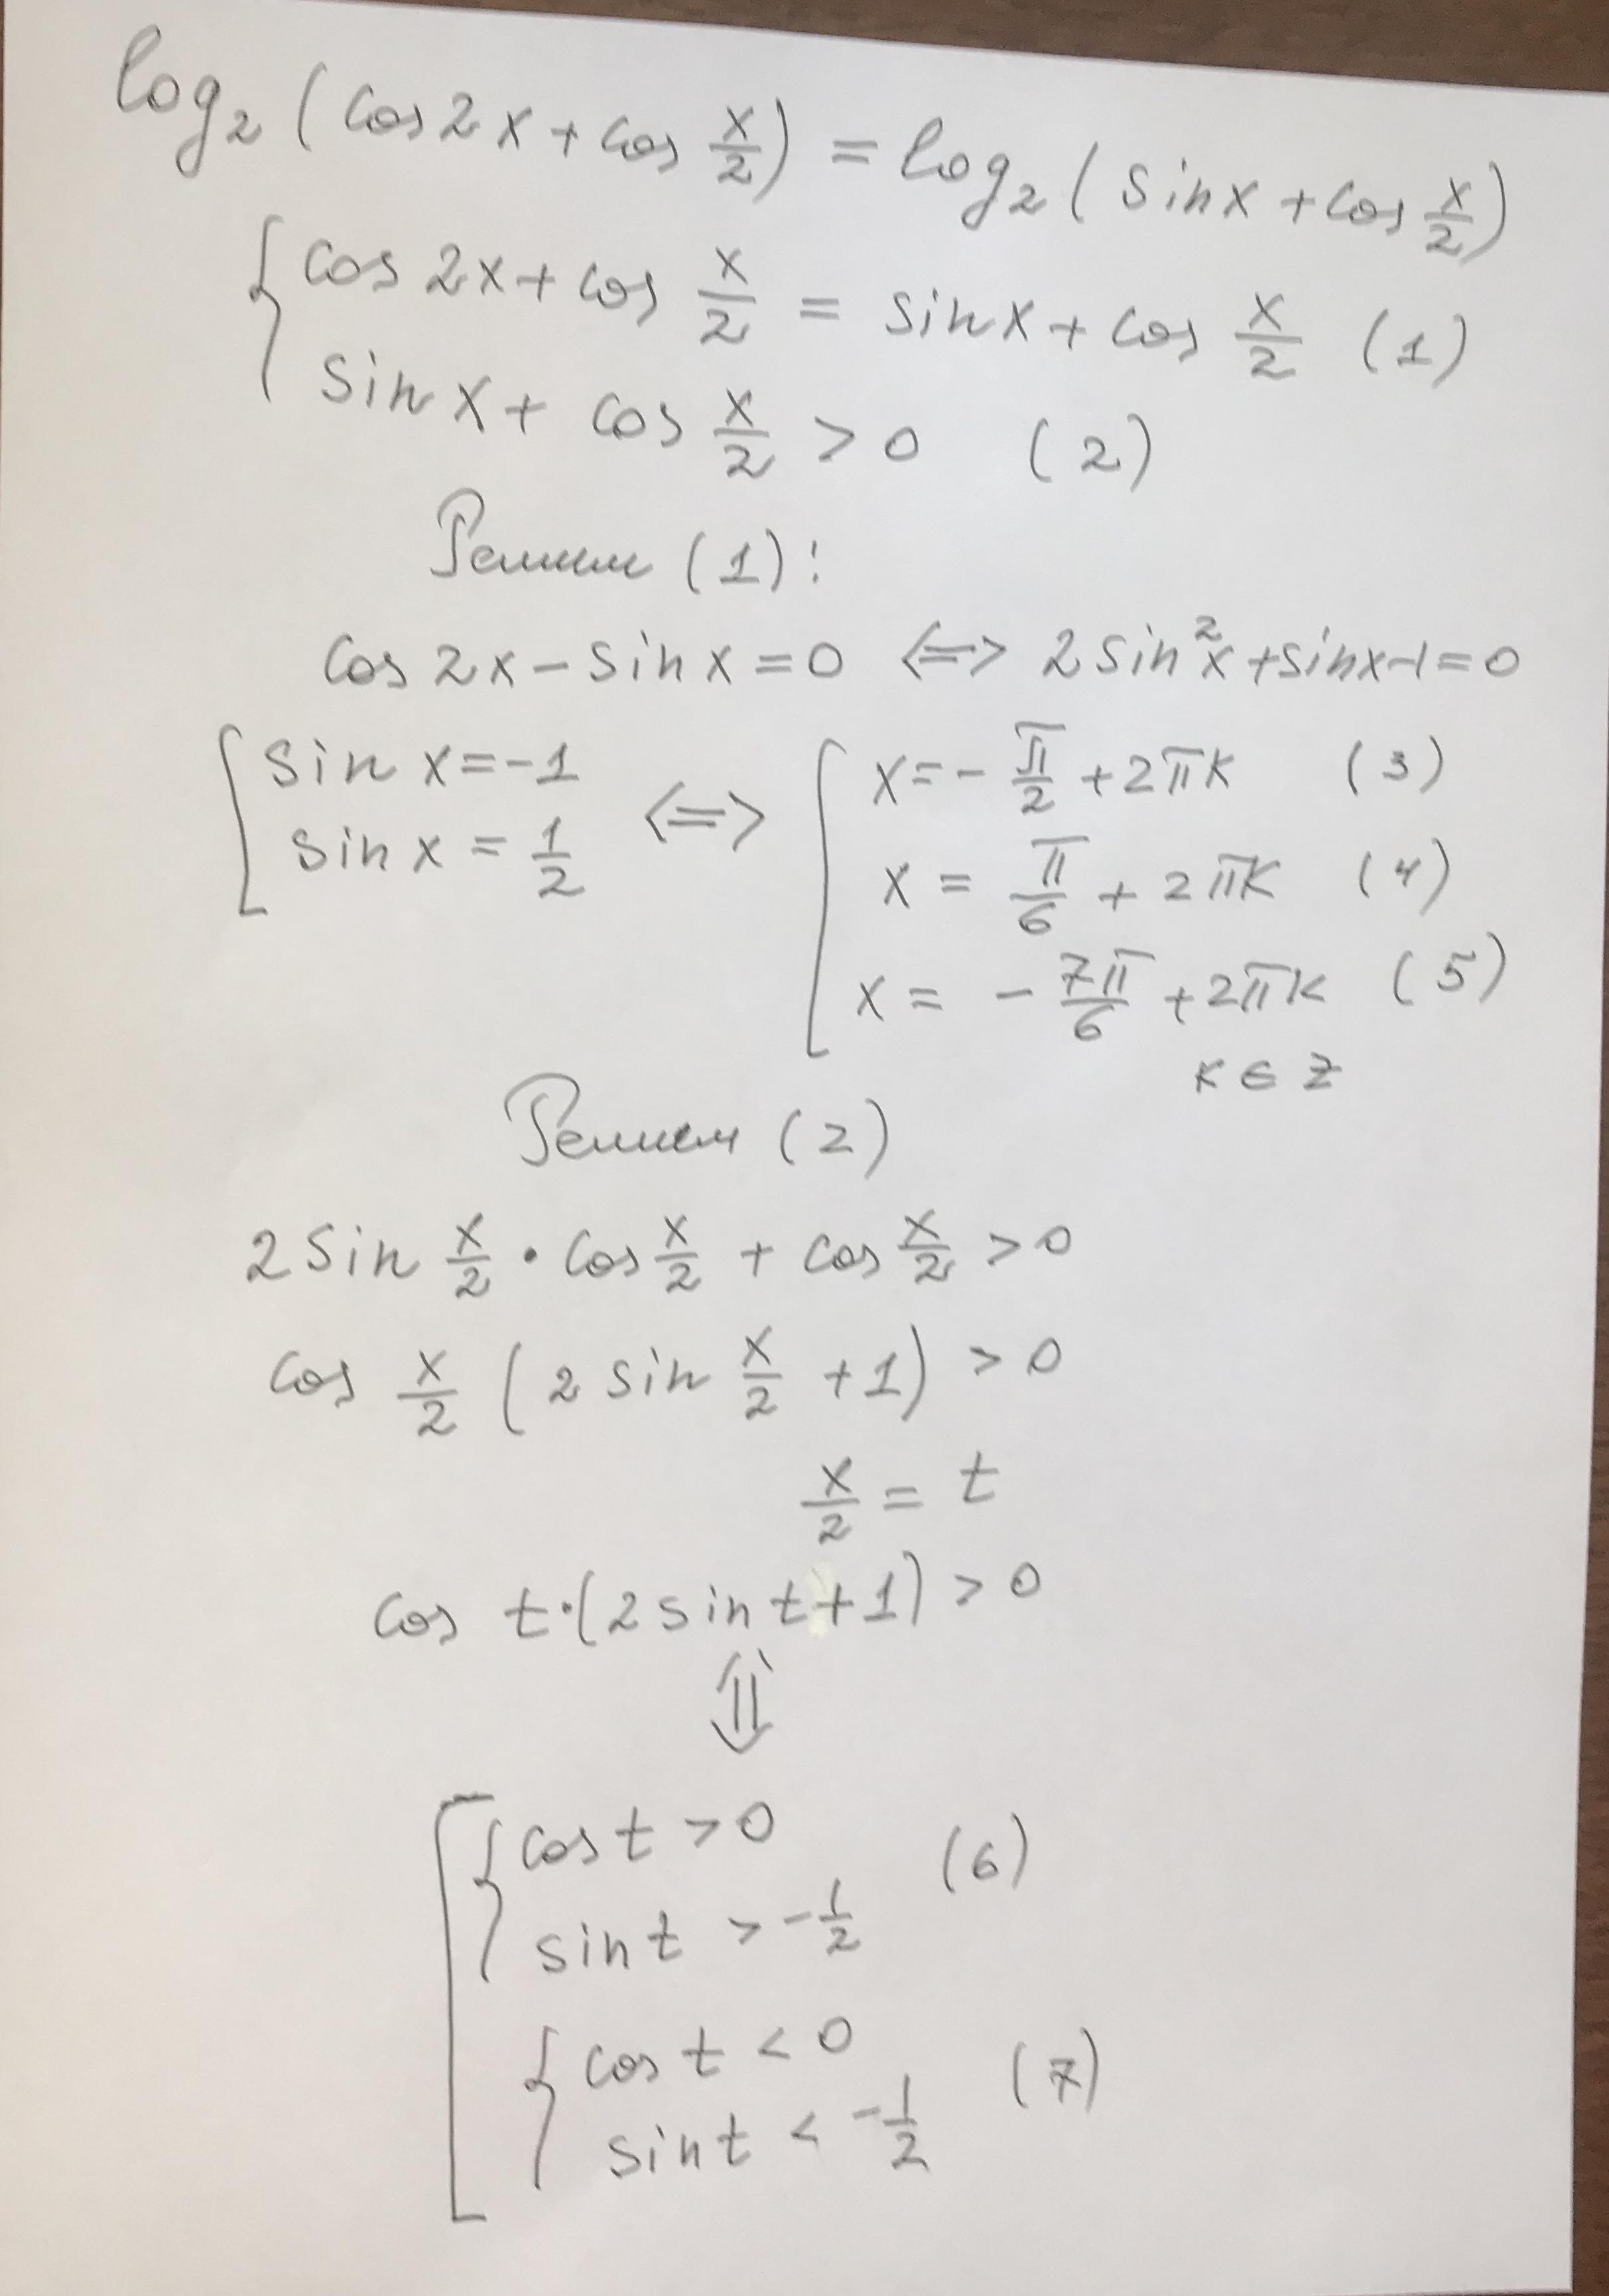 log₂(cos2x + cos x/2) = log₂(sinx + cos x/2)
{ cos 2x + cos x/2 = sinx + cos x/2 (1)
sin x + cos x/2 > 0 (2)
Решим (1):
cos 2x - sin x = 0 <=> 2 sin²x + sinx - 1 = 0
[ sin x = -1 <=> [ x = - π/2 + 2πk (3)
sin x = 1/2 x = π/6 + 2πk (4)
x = - 7π/6 + 2πk (5)
k ∈ Z
Решим (2)
2 sin x/2 · cos x/2 + cos x/2 > 0
cos x/2 (2 sin x/2 + 1) > 0
x/2 = t
cos t·(2 sin t + 1) > 0
⇕
[ { cos t > 0 (6)
sin t > -1/2
{ cos t < 0 (7)
sin t < -1/2